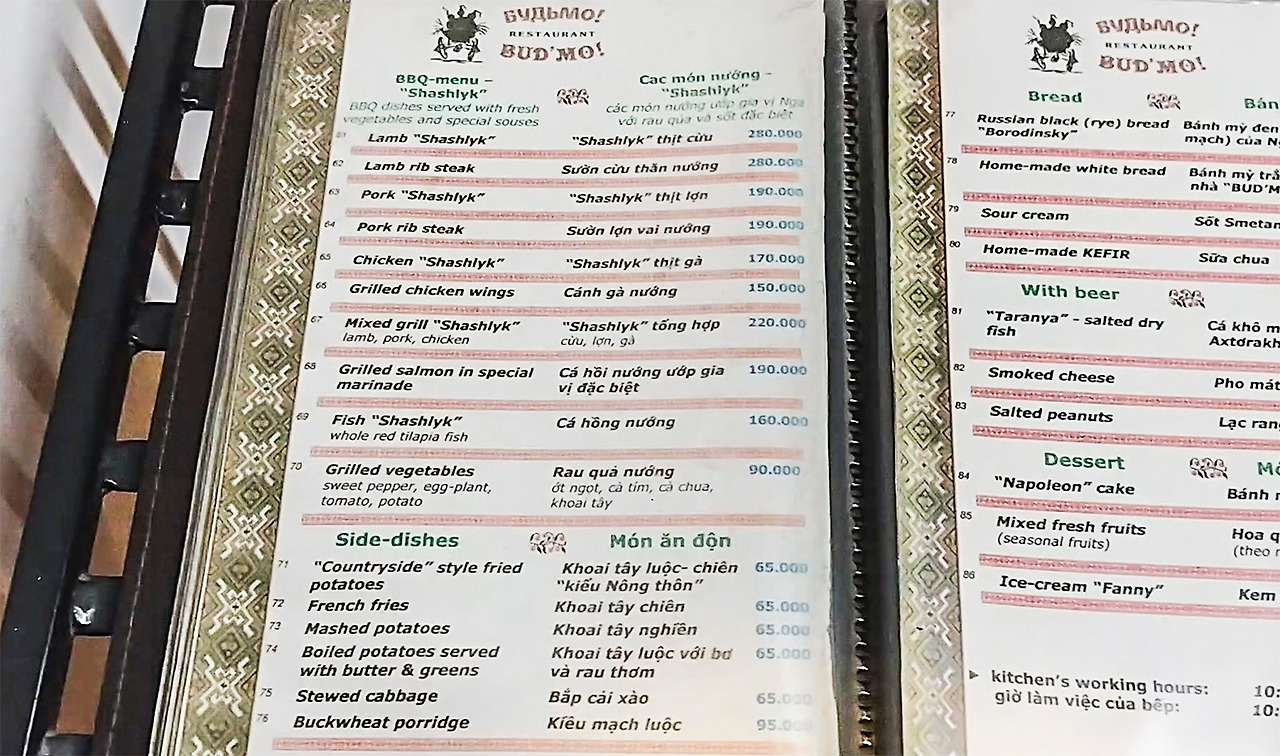 БУДЬМО!
RESTAURANT
BUD'MO!
BBQ-menu –
“Shashlyk”
BBQ dishes served with fresh
vegetables and special souses
Cac món nướng -
“Shashlyk”
các món nướng ướp gia vị Nga
với rau quả và sốt đặc biệt
61 Lamb “Shashlyk” “Shashlyk” thịt cừu 280.000
62 Lamb rib steak Sườn cừu thăn nướng 280.000
63 Pork “Shashlyk” “Shashlyk” thịt lợn 190.000
64 Pork rib steak Sườn lợn vai nướng 190.000
65 Chicken “Shashlyk” “Shashlyk” thịt gà 170.000
66 Grilled chicken wings Cánh gà nướng 150.000
67 Mixed grill “Shashlyk” “Shashlyk” tổng hợp 220.000
lamb, pork, chicken cừu, lợn, gà
68 Grilled salmon in special Cá hồi nướng ướp gia 190.000
marinade vị đặc biệt
69 Fish “Shashlyk” Cá hồng nướng 160.000
whole red tilapia fish
70 Grilled vegetables Rau quả nướng 90.000
sweet pepper, egg-plant, ớt ngọt, cà tím, cà chua,
tomato, potato khoai tây
Side-dishes Món ăn độn
71 “Countryside” style fried Khoai tây luộc- chiên 65.000
potatoes “kiểu Nông thôn”
72 French fries Khoai tây chiên 65.000
73 Mashed potatoes Khoai tây nghiền 65.000
74 Boiled potatoes served Khoai tây luộc với bơ 65.000
with butter & greens và rau thơm
75 Stewed cabbage Bắp cải xào 65.000
76 Buckwheat porridge Kiều mạch luộc 95.000
БУДЬМО!
RESTAURANT
BUD'MO!
Bread Bán
77 Russian black (rye) bread Bánh mỳ đen
“Borodinsky” mạch) của N
78 Home-made white bread Bánh mỳ trắ
nhà “BUD'M
79 Sour cream Sốt Smetan
80 Home-made KEFIR Sữa chua
With beer
81 “Taranya” - salted dry Cá khô m
fish Axtơrakh
82 Smoked cheese Pho mát
83 Salted peanuts Lạc rang
Dessert Mó
84 “Napoleon” cake Bánh n
85 Mixed fresh fruits Hoa q
(seasonal fruits) (theo
86 Ice-cream “Fanny” Kem
kitchen's working hours: 10:
giờ làm việc của bếp: 10: